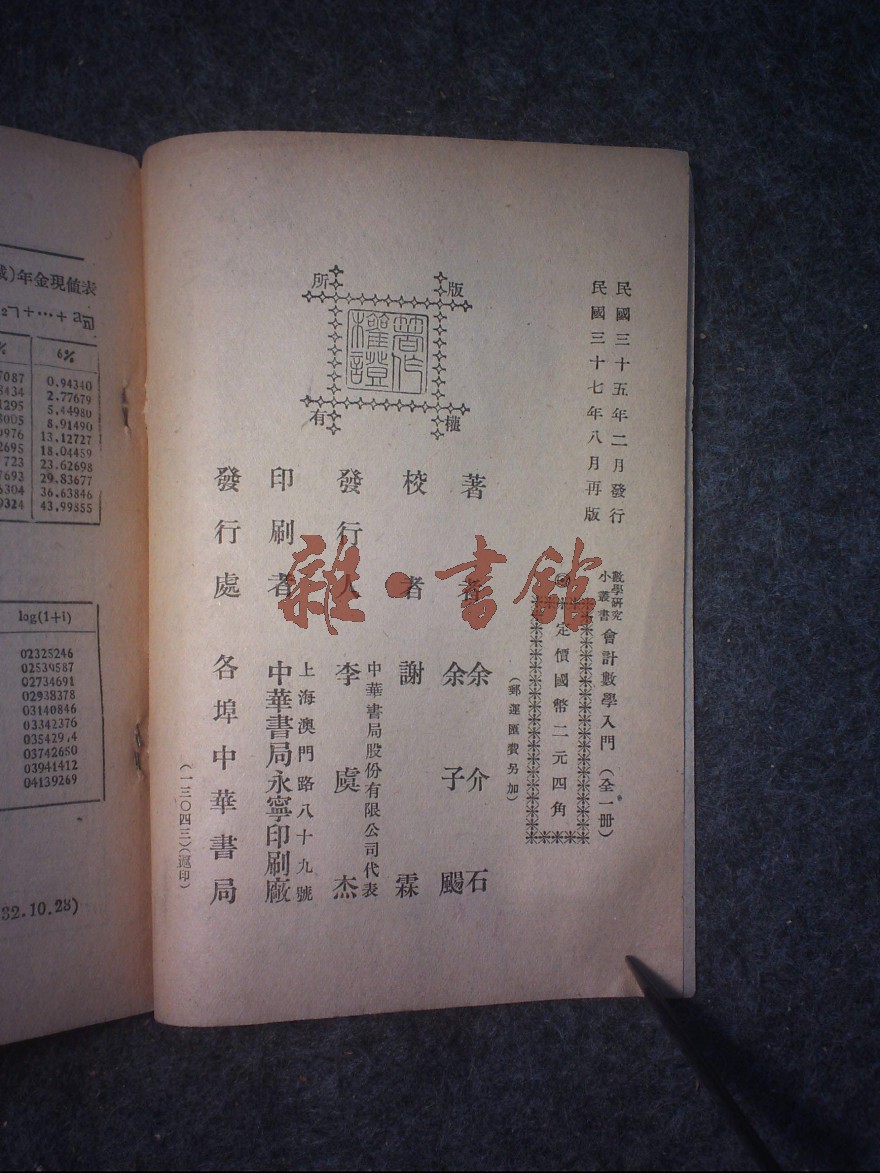 民國三十五年二月發行
民國三十七年八月再版
數學研究
小叢書
會計數學入門(全一冊)
定價國幣二元四角
(郵運匯費另加)
版
權
所
有
著作
權證
著者
余介石
余子颺
校者
謝霖
發行人
中華書局股份有限公司代表
李虞杰
印刷者
上海澳門路八十九號
中華書局永寧印刷廠
發行處
各埠中華書局
(一三〇四三)(滬印)
雜·書館
)年金現值表
6%
7087 0.94340
8434 2.77679
1295 5.44980
3005 8.91490
0976 13.12727
2695 18.04459
723 23.62698
7693 29.83677
6304 36.63846
9324 43.99355
log(1+i)
02325246
02539587
02734691
02938378
03140846
03342376
035429.4
03742650
03941412
04139269
32.10.28)